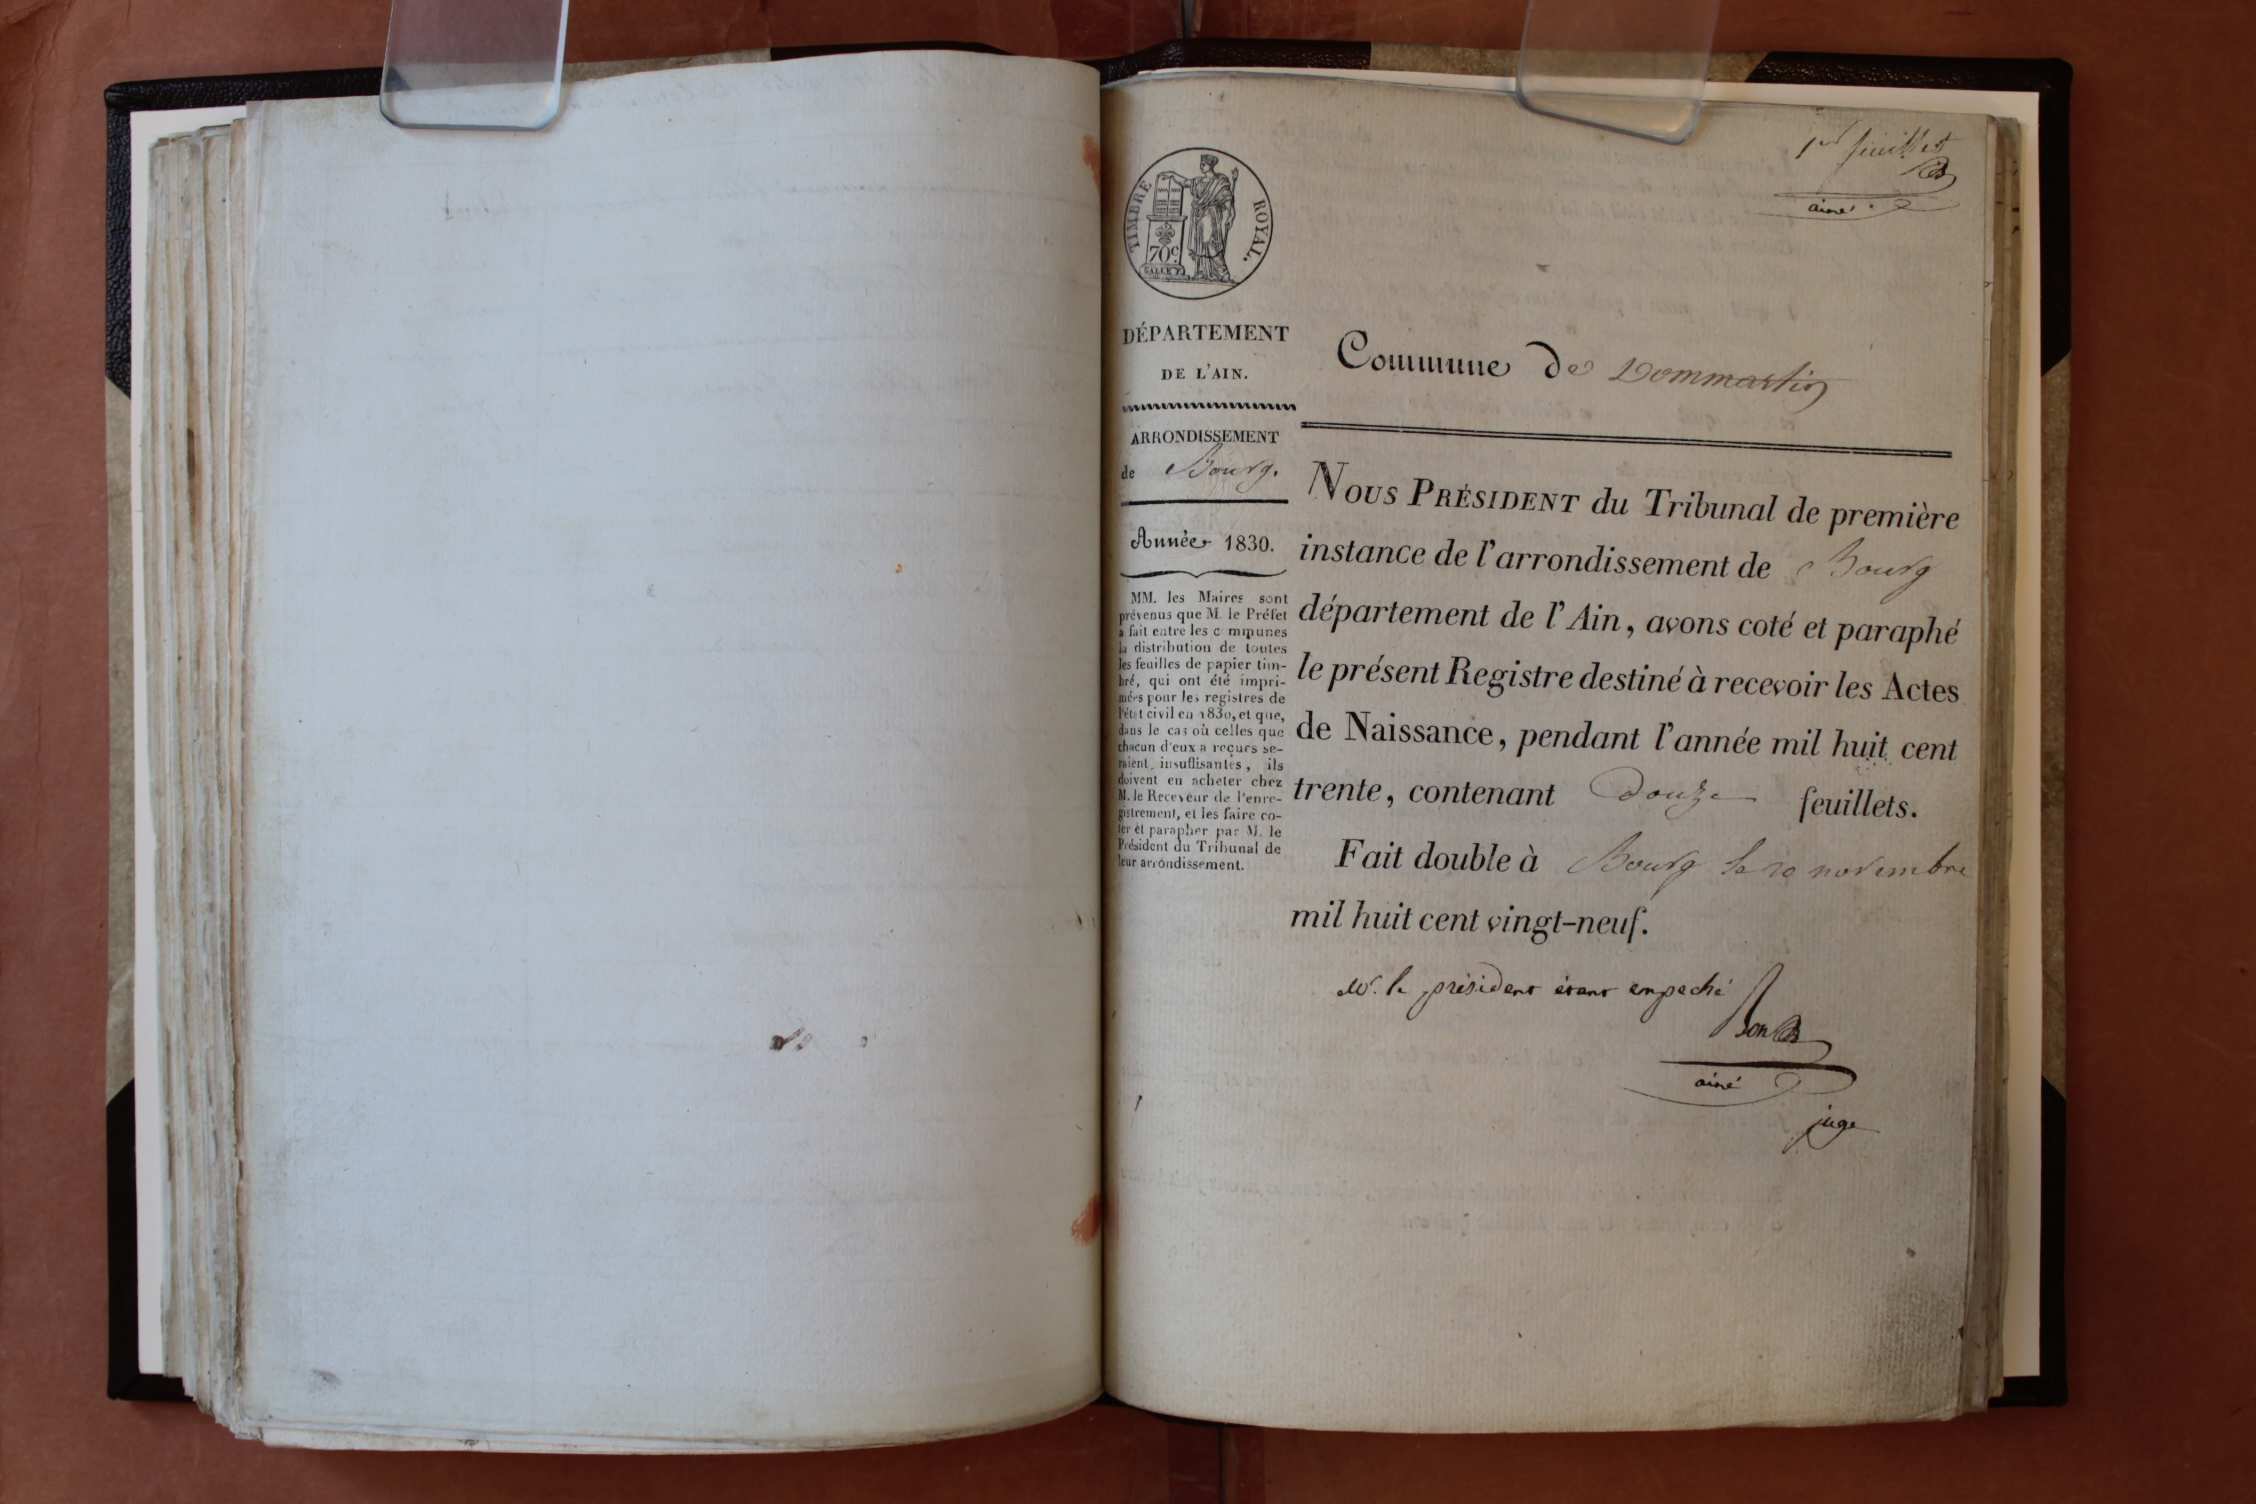 1er feuillet
ainé
TIMBRE ROYAL.
70c
DÉPARTEMENT
DE L'AIN.
ARRONDISSEMENT
de Bourg.
Année 1830.
MM. les Maires sont
prévenus que M. le Préfet
a fait entre les c mmunes
la distribution de toutes
les feuilles de papier tim-
bré, qui ont été impri-
mées pour les registres de
l'état civil en 1830, et que,
dans le cas où celles que
chacun d'eux a reçues se-
raient insuffisantes, ils
doivent en acheter chez
M. le Receveur de l'enre-
gistrement, et les faire co-
ter et parapher par M. le
Président du Tribunal de
leur arrondissement.
Commune de Dommartin
NOUS PRÉSIDENT du Tribunal de première
instance de l'arrondissement de Bourg
département de l'Ain, avons coté et paraphé
le présent Registre destiné à recevoir les Actes
de Naissance, pendant l'année mil huit cent
trente, contenant douze feuillets.
Fait double à Bourg le 20 novembre
mil huit cent vingt-neuf.
Mr. le président étant empeché
ainé
juge